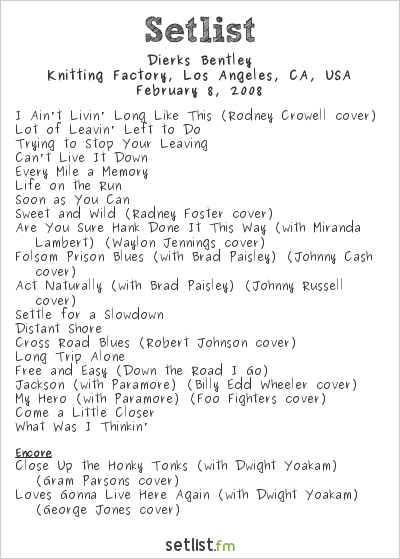 Setlist
Dierks Bentley
Knitting Factory, Los Angeles, CA, USA
February 8, 2008
I Ain't Livin' Long Like This (Rodney Crowell cover)
Lot of Leavin' Left to Do
Trying to Stop Your Leaving
Can't Live It Down
Every Mile a Memory
Life on the Run
Soon as You Can
Sweet and Wild (Radney Foster cover)
Are You Sure Hank Done It This Way (with Miranda
Lambert) (Waylon Jennings cover)
Folsom Prison Blues (with Brad Paisley) (Johnny Cash
cover)
Act Naturally (with Brad Paisley) (Johnny Russell
cover)
Settle for a Slowdown
Distant Shore
Cross Road Blues (Robert Johnson cover)
Long Trip Alone
Free and Easy (Down the Road I Go)
Jackson (with Paramore) (Billy Edd Wheeler cover)
My Hero (with Paramore) (Foo Fighters cover)
Come a Little Closer
What Was I Thinkin'
Encore
Close Up the Honky Tonks (with Dwight Yoakam)
(Gram Parsons cover)
Loves Gonna Live Here Again (with Dwight Yoakam)
(George Jones cover)
setlist.fm